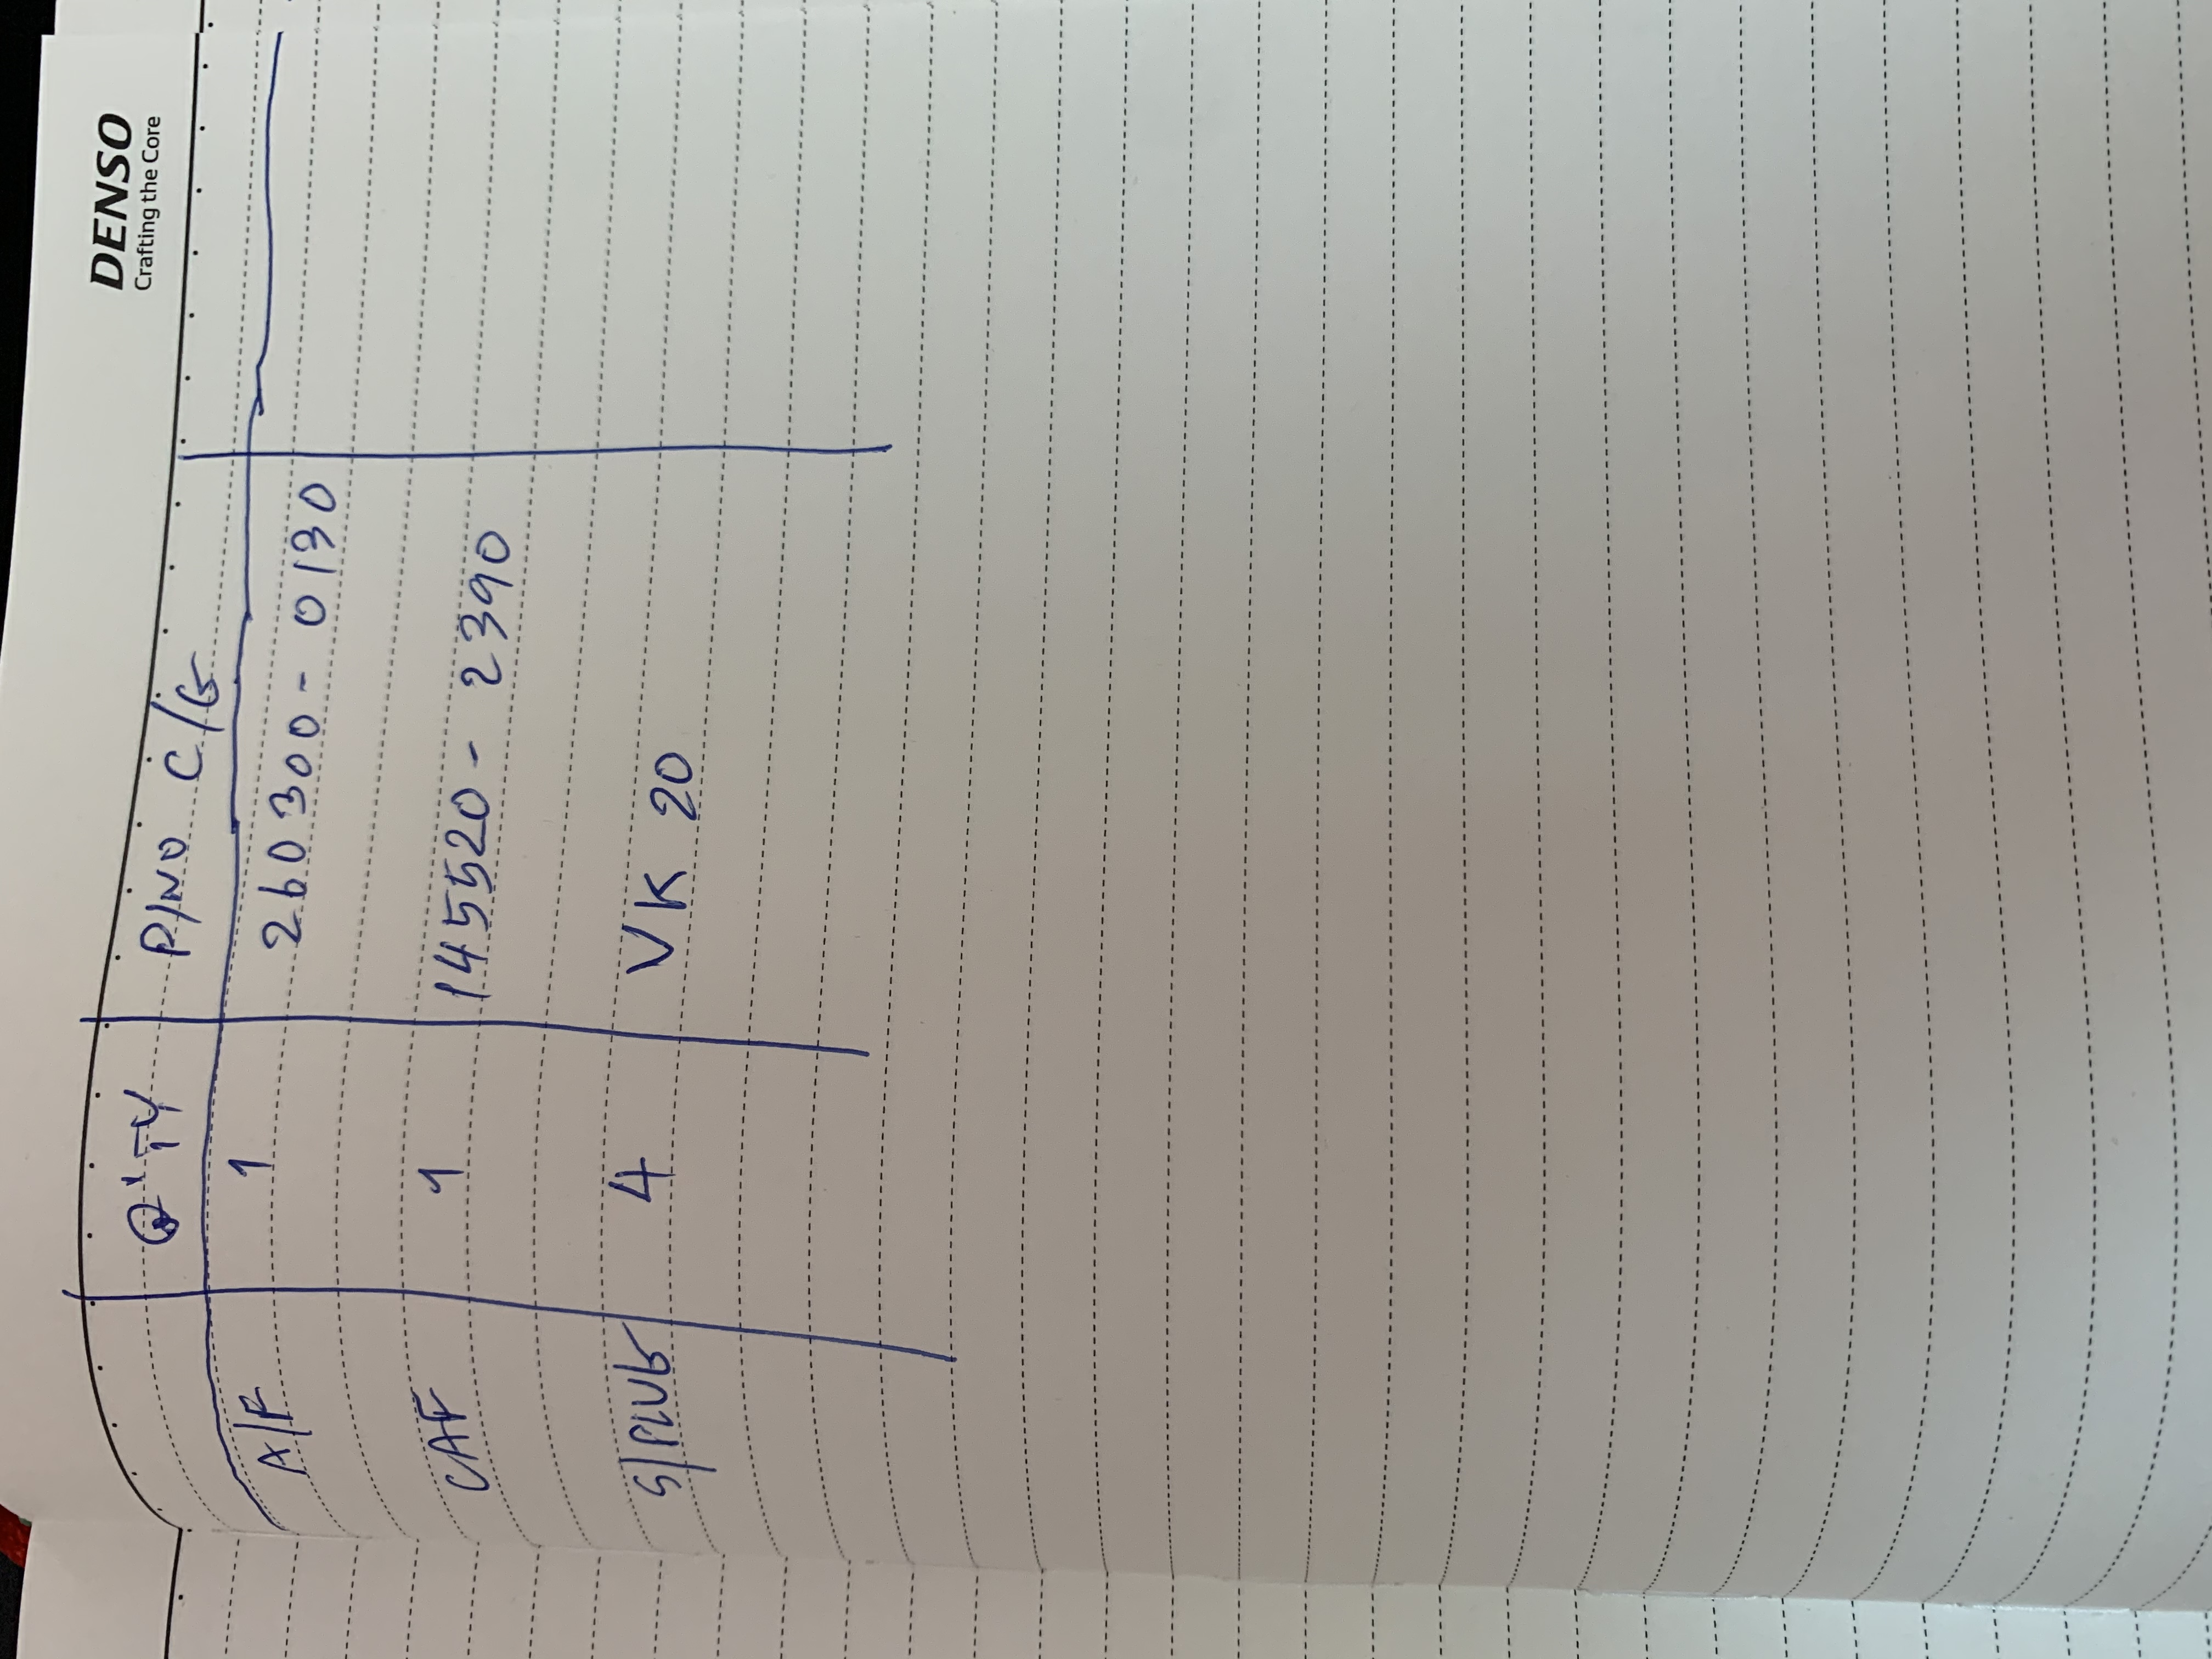 DENSO
Crafting the Core
Q'TY P/NO C/G
A/F 1 260300-0130
CAF 1 145520-2390
S/PLUG 4 VK 20